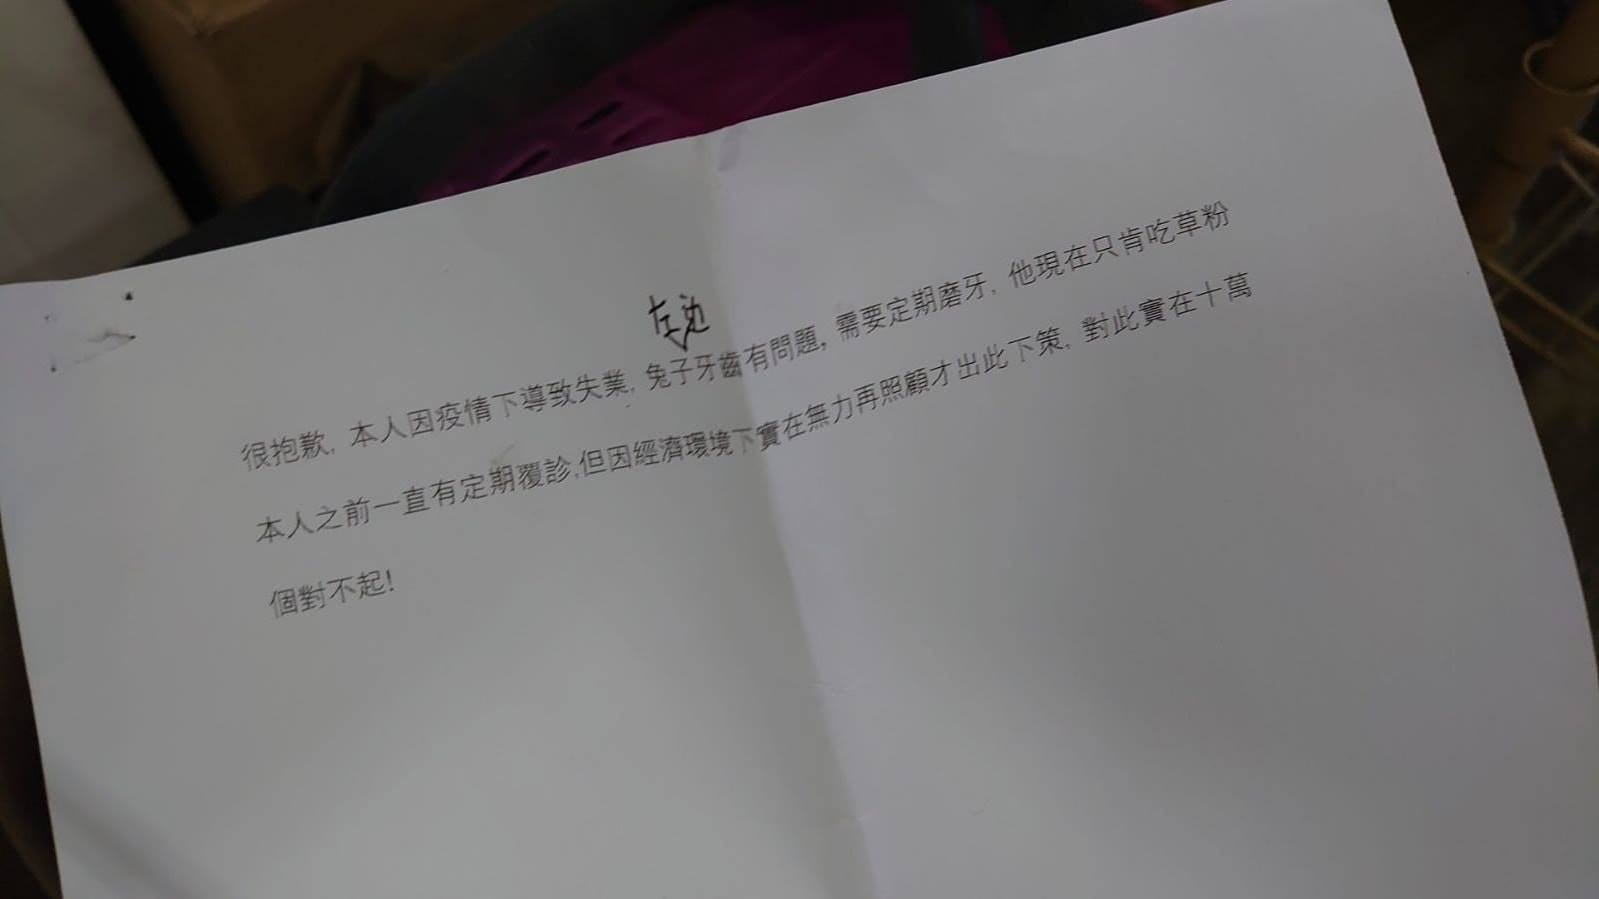 左边
很抱歉, 本人因疫情下導致失業, 兔子牙齒有問題, 需要定期磨牙, 他現在只肯吃草粉
本人之前一直有定期覆診,但因經濟環境下實在無力再照顧才出此下策, 對此實在十萬
個對不起!